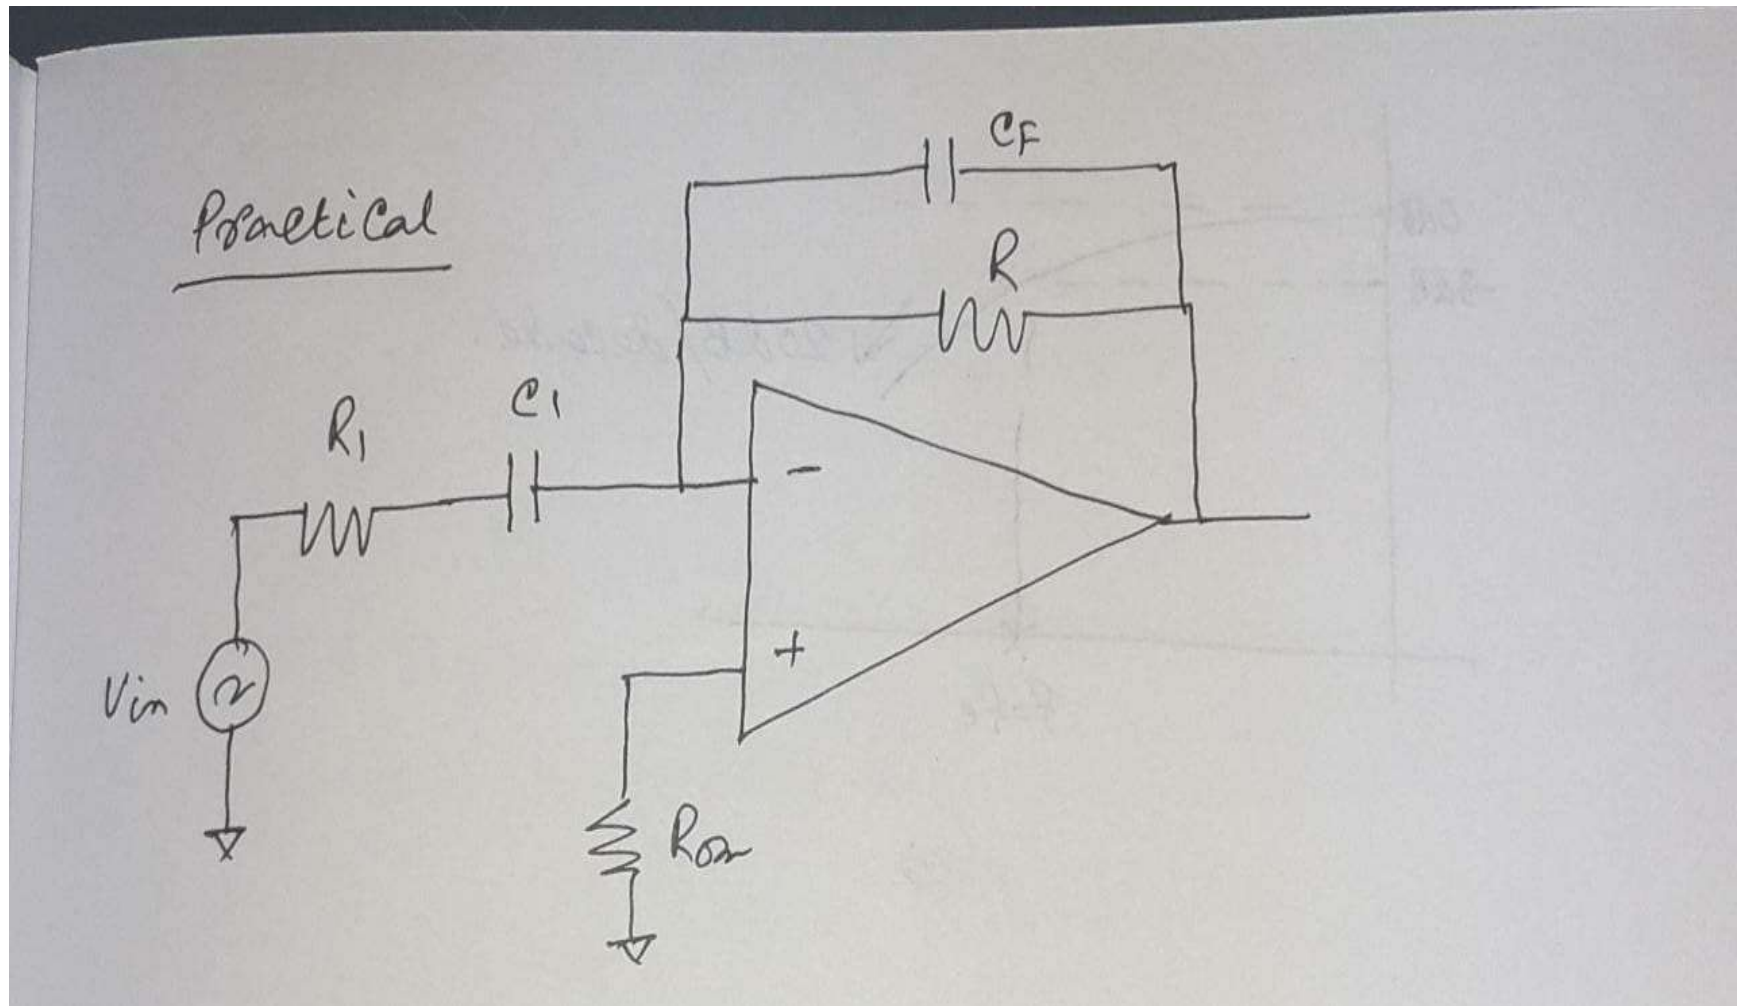 Practical
CF
R
C1
R1
-
+
Vin
Rom